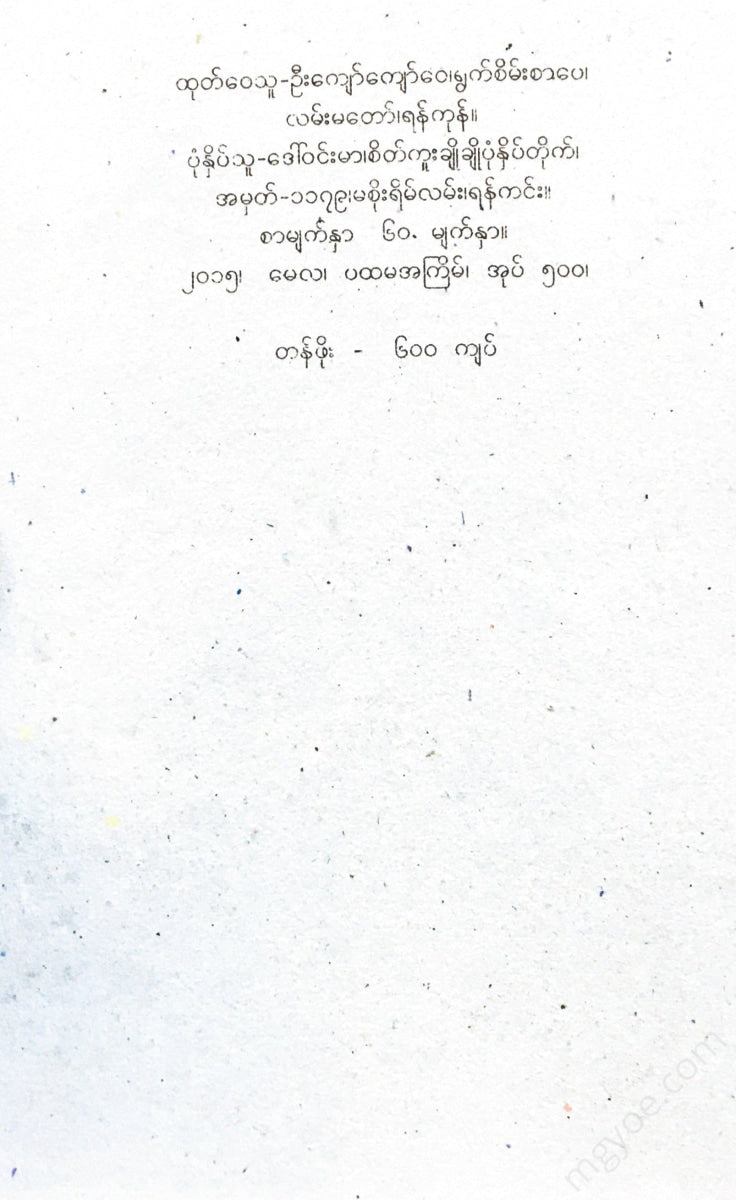 ထုတ်ဝေသူ-ဦးကျော်ကျော်ဝေ၊ရွက်စိမ်းစာပေ၊
လမ်းမတော်၊ရန်ကုန်။
ပုံနှိပ်သူ-ဒေါ်ဝင်းမာ၊စိတ်ကူးချိုချိုပုံနှိပ်တိုက်၊
အမှတ်-၁၁၇၉၊မစိုးရိမ်လမ်း၊ရန်ကင်း။
စာမျက်နှာ ၆၀. မျက်နှာ။
၂၀၁၅၊ မေလ၊ ပထမအကြိမ်၊ အုပ် ၅၀၀၊
တန်ဖိုး - ၆၀၀ ကျပ်
mgyoe.com